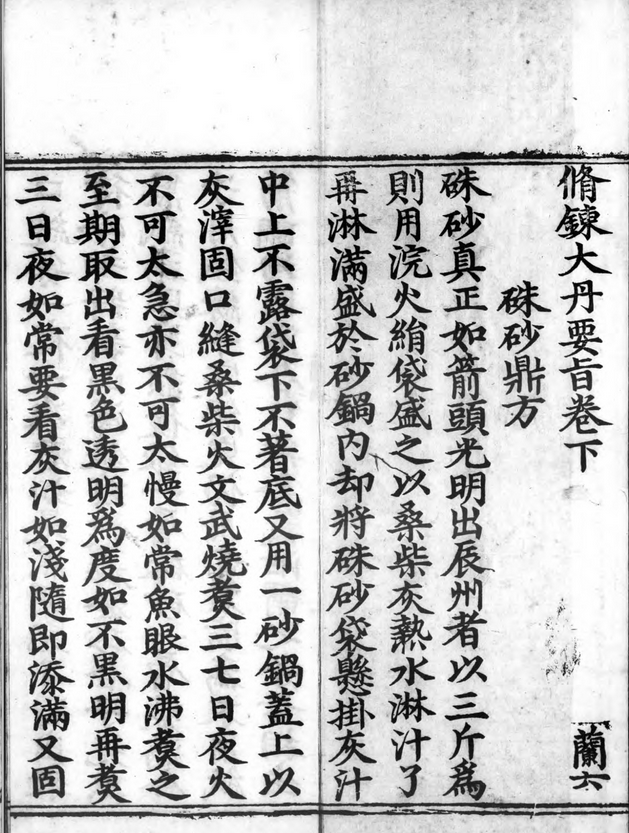 脩鍊大丹要旨卷下
蘭六
硃砂鼎方
硃砂真正如箭頭光明出辰州者以三斤爲
則用浣火絹袋盛之以桑柴灰熱水淋汁了
再淋滿盛於砂鍋内却將硃砂袋懸掛灰汁
中上不露袋下不著底又用一砂鍋蓋上以
灰滓固口縫桑柴火文武燒煑三七日夜火
不可太急亦不可太慢如常魚眼水沸煑之
至期取出看黑色透明爲度如不黑明再煑
三日夜如常要看灰汁如淺隨即添滿又固